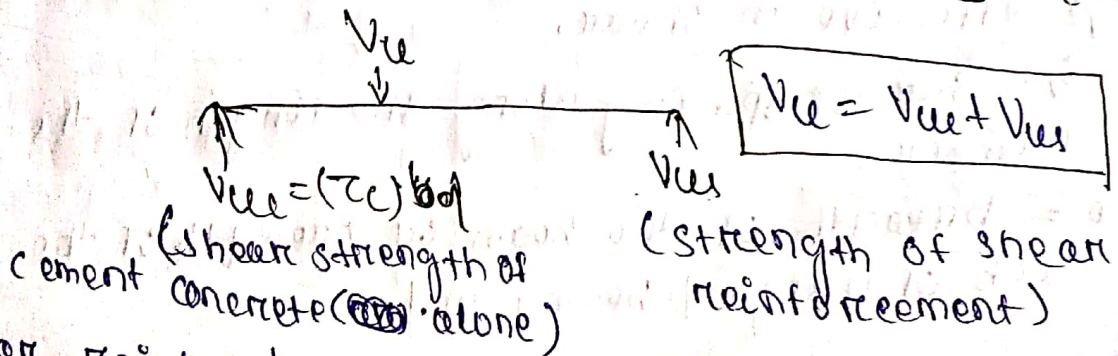 Vu
Vu = Vuc + Vus
Vuc = (τc) bd
Vus
(shear strength of
cement concrete ( alone)
(strength of shear
reinforcement)